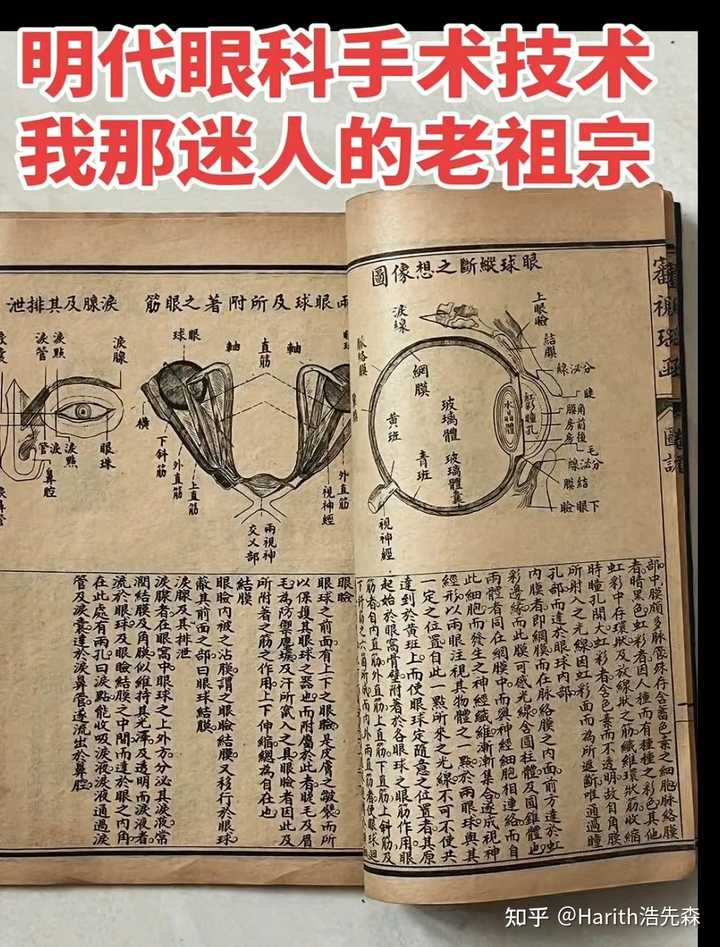 明代眼科手术技术
我那迷人的老祖宗
審視瑤函
圖說
眼球縱斷之想像圖
上眼瞼
結膜
分泌線
淚線
脈絡膜
網膜
黃班
青班
玻璃體
玻璃體囊
水晶體
虹彩
瞳孔
睫
角膜
前房
後房
毛
分泌線
結膜
下眼瞼
視神經
部中膜頗多脈管殊存含蓄色素之細胞脈絡膜
者暗黑色虹彩者因人種而有種種之彩色其他
虹彩中存環狀及放線狀之筋纖維環狀筋收縮
時瞳孔閉大虹彩者含色素而不透明故自角膜
所射入之光線因虹彩面而為所遮斷唯通過瞳
孔部而達於眼球內部
內膜者即網膜而在脈絡膜之內面前方達於虹
彩邊緣而此膜可感光線含圓柱體及圓錐體也
兩體者同在網膜中而與神經細胞相連絡而自
此細胞而發生之神經纖維漸漸集合遂成視神
經形以兩眼注視其物體之一點於兩眼球與其
一定之位置自此一點所來之光線不可不使共
達到於黃班上而使眼球定隨意之位置者其原
起始於眼窩骨壁附著於各眼球之眼筋作用眼
筋者自內直筋外直筋上直筋下直筋上斜筋及
兩眼球及所附著之眼筋
眼球
軸
直筋
軸
橫
下斜筋
外直筋
上直筋
兩視神交乂部
視神經
外直筋
淚腺及其排泄
淚腺
淚點
淚管
眼珠
淚點
淚管
鼻腔
眼瞼
眼球之前面有上下之眼瞼是皮膚之皺襞而所
以保護其眼球之器也而附屬於此者睫毛及眉
毛為防禦塵埃及汗所竄入之具眼瞼者因此及
所附著之筋之作用上下伸縮總為自在也
結膜
眼瞼內被之沾膜謂之眼瞼結膜又移行於眼球
蔽其前面之部曰眼球結膜
淚腺及其排泄
淚腺者在眼窩中眼球之上外方分泌其淚液常
潤結膜及角膜似維持其光澤及透明而淚液者
流於眼球及眼瞼結膜之中間而達於眼之內角
在此處有兩孔曰淚點能收吸淚液淚液通過淚
管及淚囊達於淚鼻管遂流出於鼻腔
知乎 @Harith浩先森